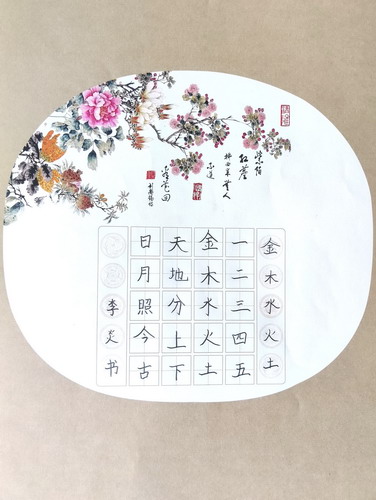 金木水火土
一二三四五
金木水火土
天地分上下
日月照今古
李炎书